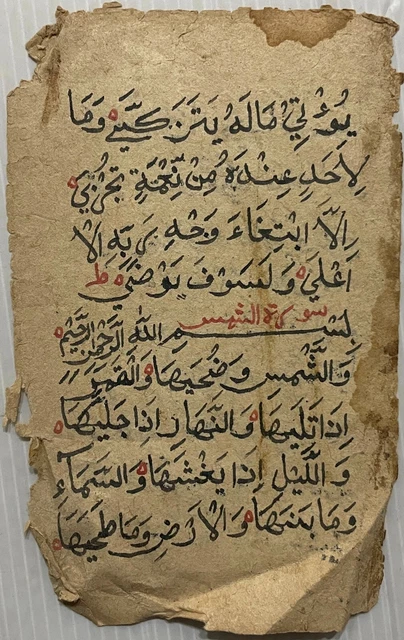 يُؤْتِي مَالَهُ يَتَزَكَّىٰ ه وَمَا
لِاَحَدٍ عِنْدَهُ مِنْ نِّعْمَةٍ تُجْزٰىٓ ه
اِلَّا ابْتِغَاءَ وَجْهِ رَبِّهِ الْا
اَعْلَىٰ ه وَلَسَوْفَ يَرْضَىٰ ه ط
سورة الشمس
بِسْمِ اللّٰهِ الرَّحْمٰنِ الرَّحِيْمِ ه
وَالشَّمْسِ وَضُحٰيهَا ه وَالْقَمَرِ
اِذَا تَلٰيهَا ه وَالنَّهَارِ اِذَا جَلّٰيهَا ه
وَالَّيْلِ اِذَا يَغْشٰيهَا ه وَالسَّمَآءِ
وَمَا بَنٰيهَا ه وَالْاَرْضِ وَمَا طَحٰيهَا ه